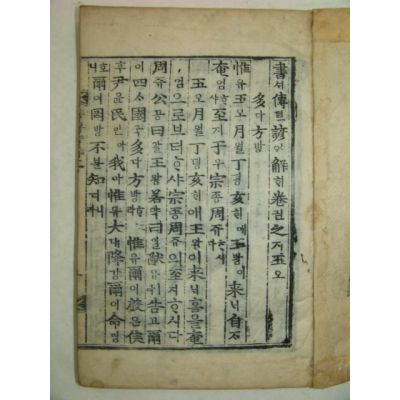 書셔傳뎐諺언解ᄒᆡ卷권之지五오
多다方방
惟유五오月월丁뎡亥ᄒᆡ예王왕이來ᄅᆡ自ᄌᆞ
奄엄ᄒᆞ샤至지于우宗종周쥬ᄒᆞ시다
五오月월丁뎡亥ᄒᆡ예王왕이來ᄅᆡᄒᆞᆷ을奄
엄으로브터ᄒᆞ샤宗종周쥬의至지ᄒᆞ시다
周쥬公공曰왈王왕若약曰왈猷유告고爾
이四ᄉᆞ國국多다方방惟유爾이殷은侯
후尹윤民민아我아惟유大대降강爾이命명
호니爾이罔망不블知디